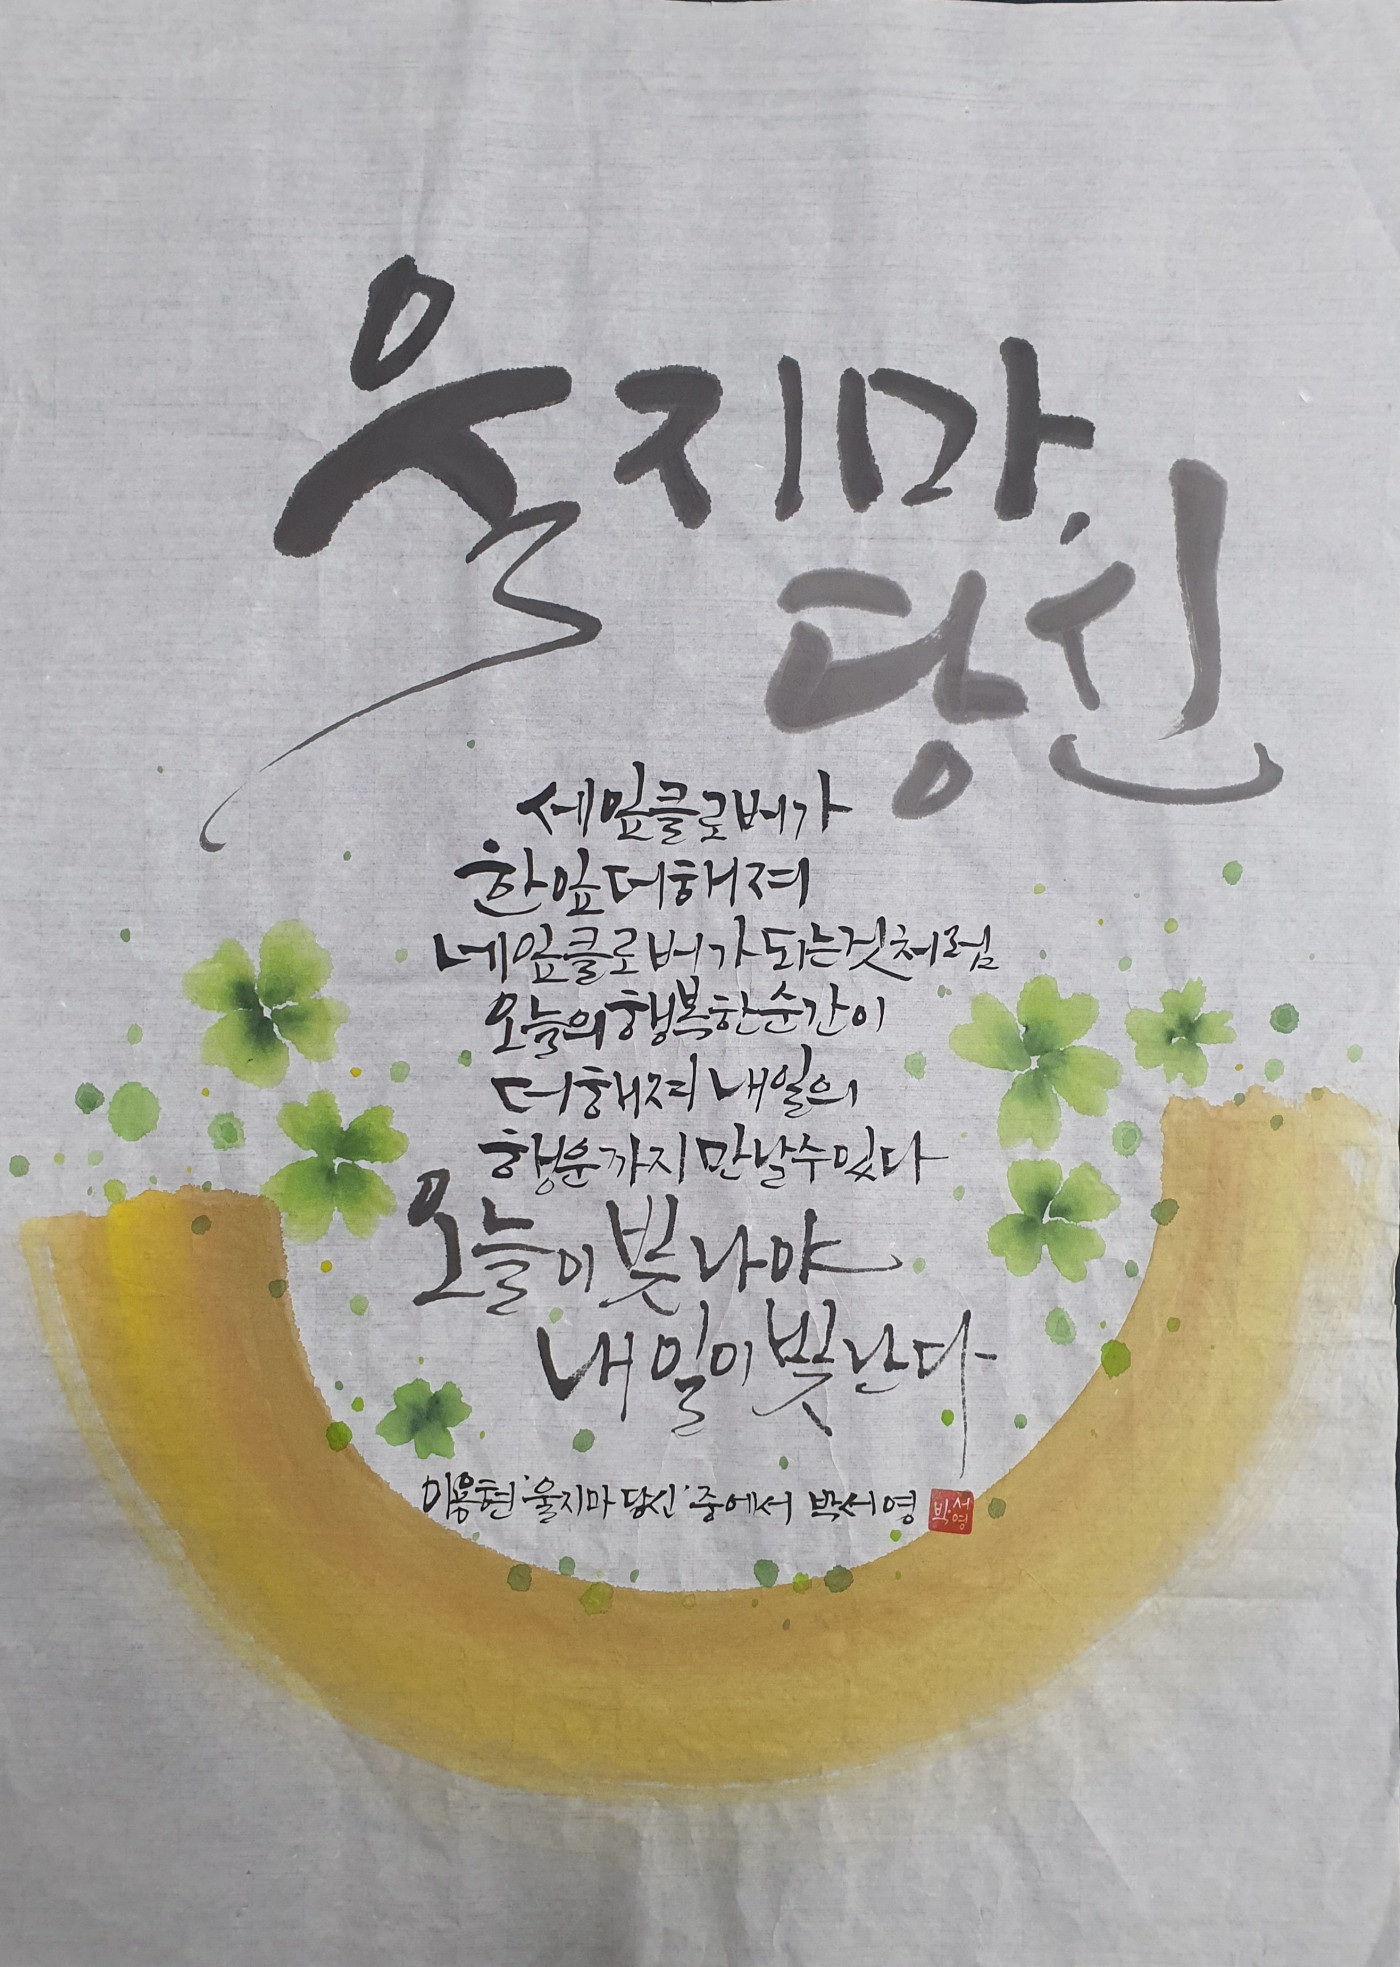 울지마,
당신
세잎클로버가
한잎더해져
네잎클로버가 되는것처럼
오늘의행복한순간이
더해져 내일의
행운까지 만날수있다
오늘이 빛나야
내일이 빛난다
이용현 '울지마 당신' 중에서 박서영
박서영